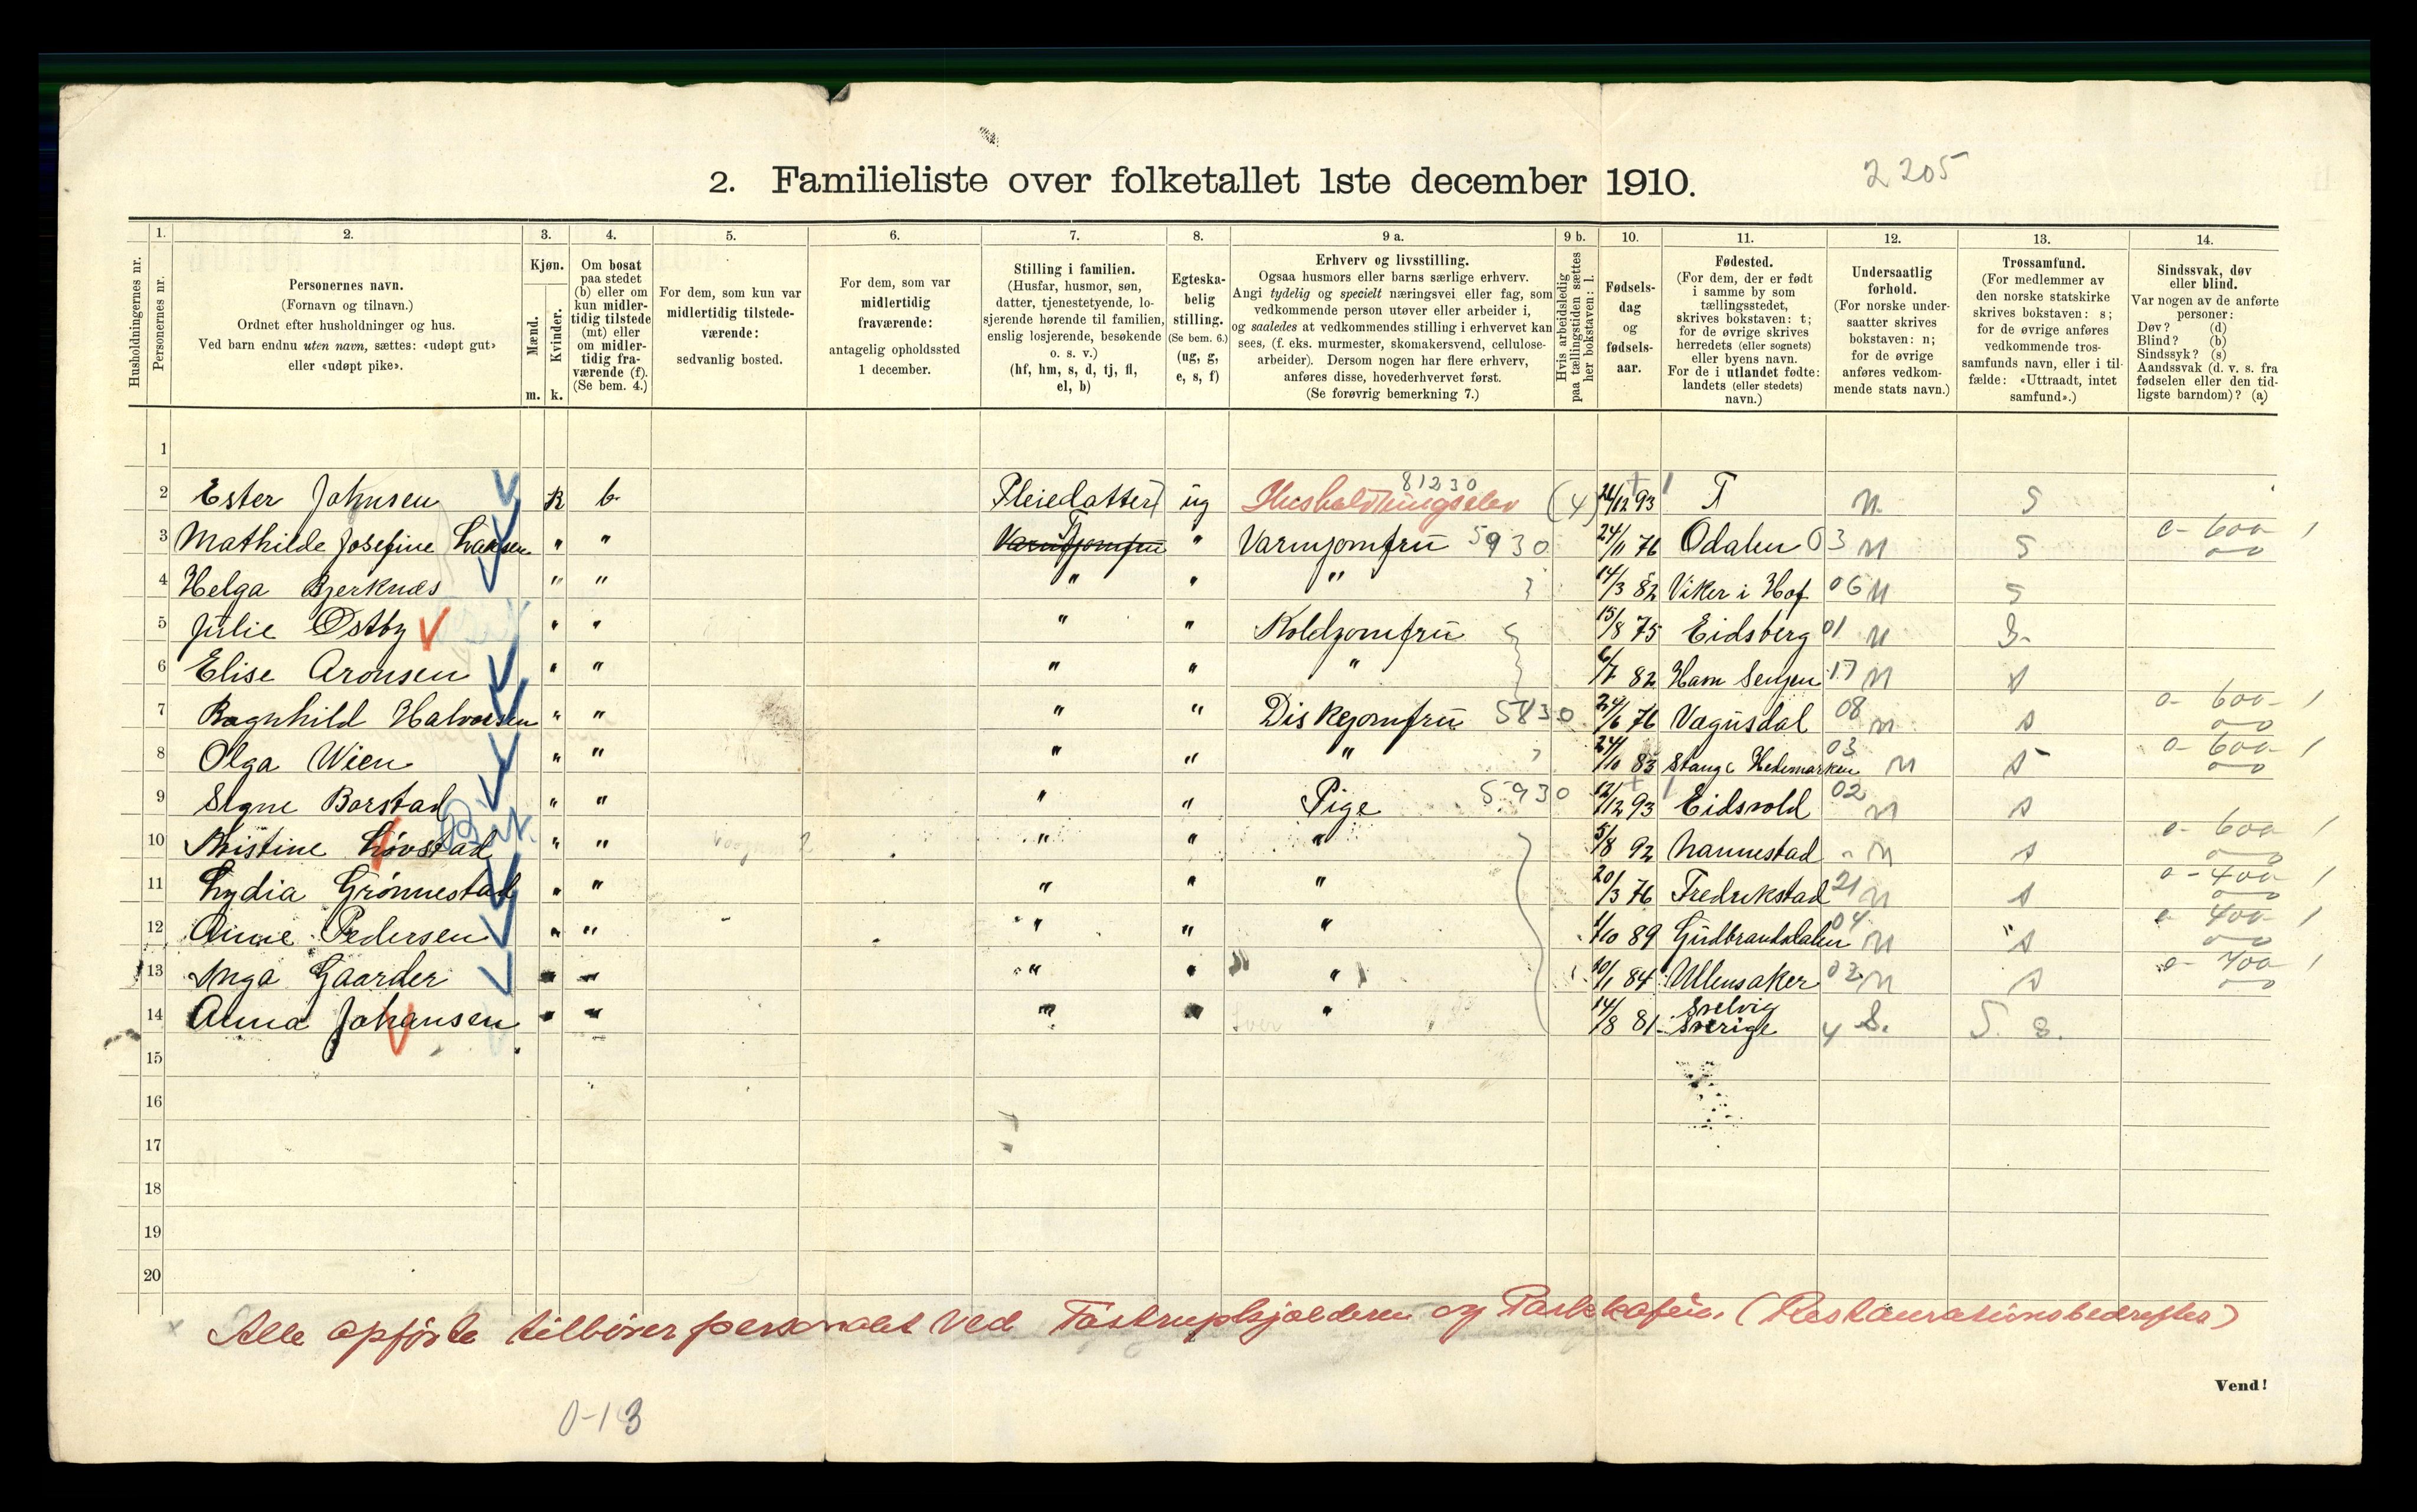 2. Familieliste over folketallet 1ste december 1910.
2205
Husholdningernes nr.
1. Personernes nr.
2. Personernes navn. (Fornavn og tilnavn.) Ordnet efter husholdninger og hus. Ved barn endnu uten navn, sættes: «udøpt gut» eller «udøpt pike».
3. Kjøn. Mænd. m. Kvinder. k.
4. Om bosat paa stedet (b) eller om kun midlertidig tilstede (mt) eller om midlertidig fraværende (f). (Se bem. 4.)
5. For dem, som kun var midlertidig tilstedeværende: sedvanlig bosted.
6. For dem, som var midlertidig fraværende: antagelig opholdssted 1 december.
7. Stilling i familien. (Husfar, husmor, søn, datter, tjenestetyende, losjerende hørende til familien, enslig losjerende, besøkende o. s. v.) (hf, hm, s, d, tj, fl, el, b)
8. Egteskabelig stilling. (Se bem. 6.) (ug, g, e, s, f)
9 a. Erhverv og livsstilling. Ogsaa husmors eller barns særlige erhverv. Angi tydelig og specielt næringsvei eller fag, som vedkommende person utøver eller arbeider i, og saaledes at vedkommendes stilling i erhvervet kan sees, (f. eks. murmester, skomakersvend, cellulosearbeider). Dersom nogen har flere erhverv, anføres disse, hovederhvervet først. (Se forøvrig bemerkning 7.)
9 b. Hvis arbeidsledig paa tællingstiden sættes her bokstaven: l.
10. Fødselsdag og fødselsaar.
11. Fødested. (For dem, der er født i samme by som tællingsstedet, skrives bokstaven: t; for de øvrige skrives herredets (eller sognets) eller byens navn. For de i utlandet fødte: landets (eller stedets) navn.)
12. Undersaatlig forhold. (For norske undersaatter skrives bokstaven: n; for de øvrige anføres vedkommende stats navn.)
13. Trossamfund. (For medlemmer av den norske statskirke skrives bokstaven: s; for de øvrige anføres vedkommende trossamfunds navn, eller i tilfælde: «Uttraadt, intet samfund».)
14. Sindssvak, døv eller blind. Var nogen av de anførte personer: Døv? (d) Blind? (b) Sindssyk? (s) Aandssvak (d. v. s. fra fødselen eller den tidligste barndom)? (a)
1
2 Ester Johnsen k b. Pleiedatter ug Husholdningselev 81230 (4) 12 93 T n. S
3 Mathilde Josefine Larsen " " Tj " Varmjomfru 5930 24/11 76 Odalen 03 n S 0-600 1
4 Helga Bjerknæs " " " " " 14/3 82 Viker i Hof 06 n S
5 Julie Østby " " " " Koldjomfru 15/8 75 Eidsberg 01 n S.
6 Elise Aronsen " " " " " 6/7 82 Ham Senjen 17 n s
7 Ragnhild Halvorsen " " " " Diskejomfru 5830 24/6 76 Vagnsdal 08 n s 0-600- 1
8 Olga Wien " " " " " 24/10 83 Stange Hedemarken 03 n s 0-600 1
9 Signe Borstad " " " " Pige 5930 12/12 93 Eidsvold 02 n s
10 Kristine Løvstad " " " " " 5/8 92 Nannestad " n s 0-600 1
11 Lydia Grønnestad " " " " " 20/3 76 Fredrikstad 21 n s 0-400 1
12 Anne Pedersen " " " " " 1/10 89 Gudbrandsdalen 04 n s 0 400 1
13 Inga Gaarder " " " " " 10/1 84 Ullensaker 02 n s 0-400 1
14 Anna Johansen " " " " " 14/8 81 Svelvig Sverige 4 S. S. s.
15
16
17
18
19
20
Alle opførte tilhører personalet ved Tostrupkjælderen og Parkkaféen (Restaurationsbedrifter)
Vend!
0-13